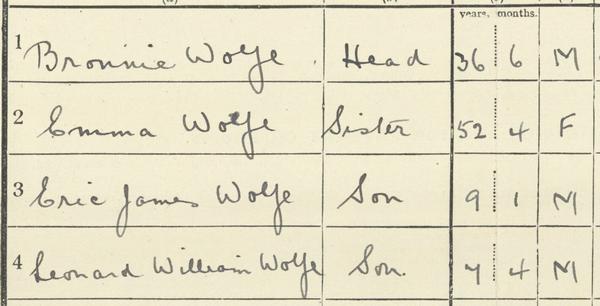 years, months.
1 Bronnie Wolfe . Head 36 6 M
2 Emma Wolfe Sister 52 4 F
3 Eric James Wolfe Son 9 1 M
4 Leonard William Wolfe Son. 7 4 M